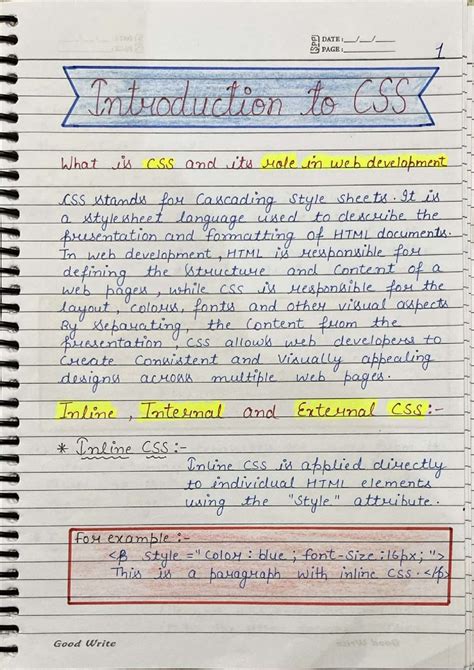 DATE: __/__/__
PAGE:
1
Introduction to CSS
What is CSS and its role in web development
CSS stands for Cascading Style sheets. It is
a stylesheet language used to describe the
presentation and formatting of HTML documents.
In web development, HTML is responsible for
defining the structure and content of a
web pages, while CSS is responsible for the
layout, colors, fonts and other visual aspects
By separating, the content from the
presentation, CSS allows web developers to
create consistent and visually appealing
designs across multiple web pages.
Inline, Internal and External CSS:-
* Inline CSS:-
Inline CSS is applied directly
to individual HTML elements
using the "Style" attribute.
For example:-
<p style = "color: blue; font-size:16px;">
This is a paragraph with inline CSS.</p>
Good Write